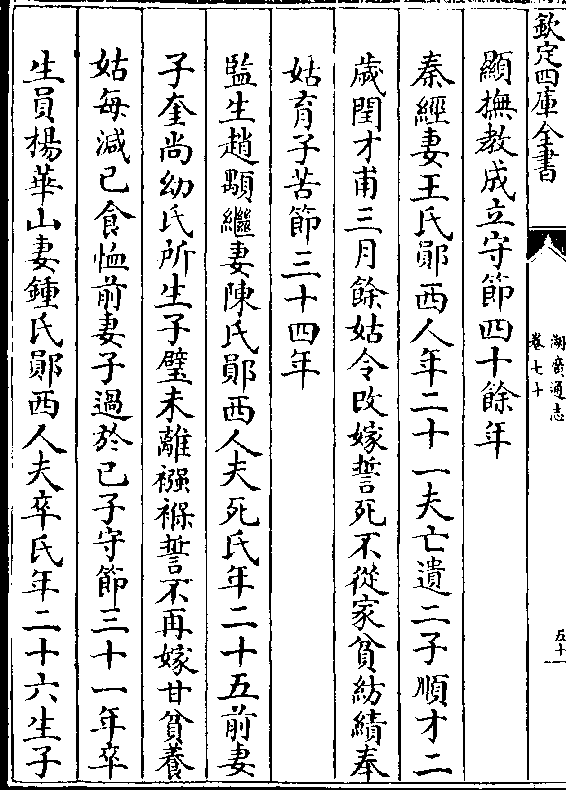 欽定四庫全書
湖廣通志
卷七十
五十一
顯撫教成立守節四十餘年
秦經妻王氏鄖西人年二十一夫亡遺二子順才二
歲閏才甫三月餘姑令改嫁誓死不從家貧紡績奉
姑育子苦節三十四年
監生趙顒繼妻陳氏鄖西人夫死氏年二十五前妻
子奎尚幼氏所生子璧未離襁褓誓不再嫁甘貧養
姑每減已食恤前妻子過於已子守節三十一年卒
生員楊華山妻鍾氏鄖西人夫卒氏年二十六生子